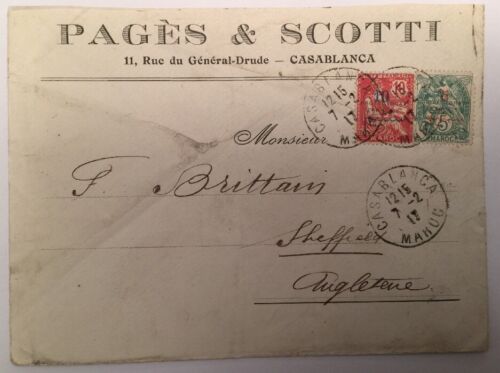 PAGÈS & SCOTTI
11, Rue du Général-Drude — CASABLANCA
CASABLANCA
12 15
7 - 2
17
MAROC
10
15
MAROC
Monsieur
F. Brittain
CASABLANCA
12 15
7 - 2
17
MAROC
Sheffield
Angleterre